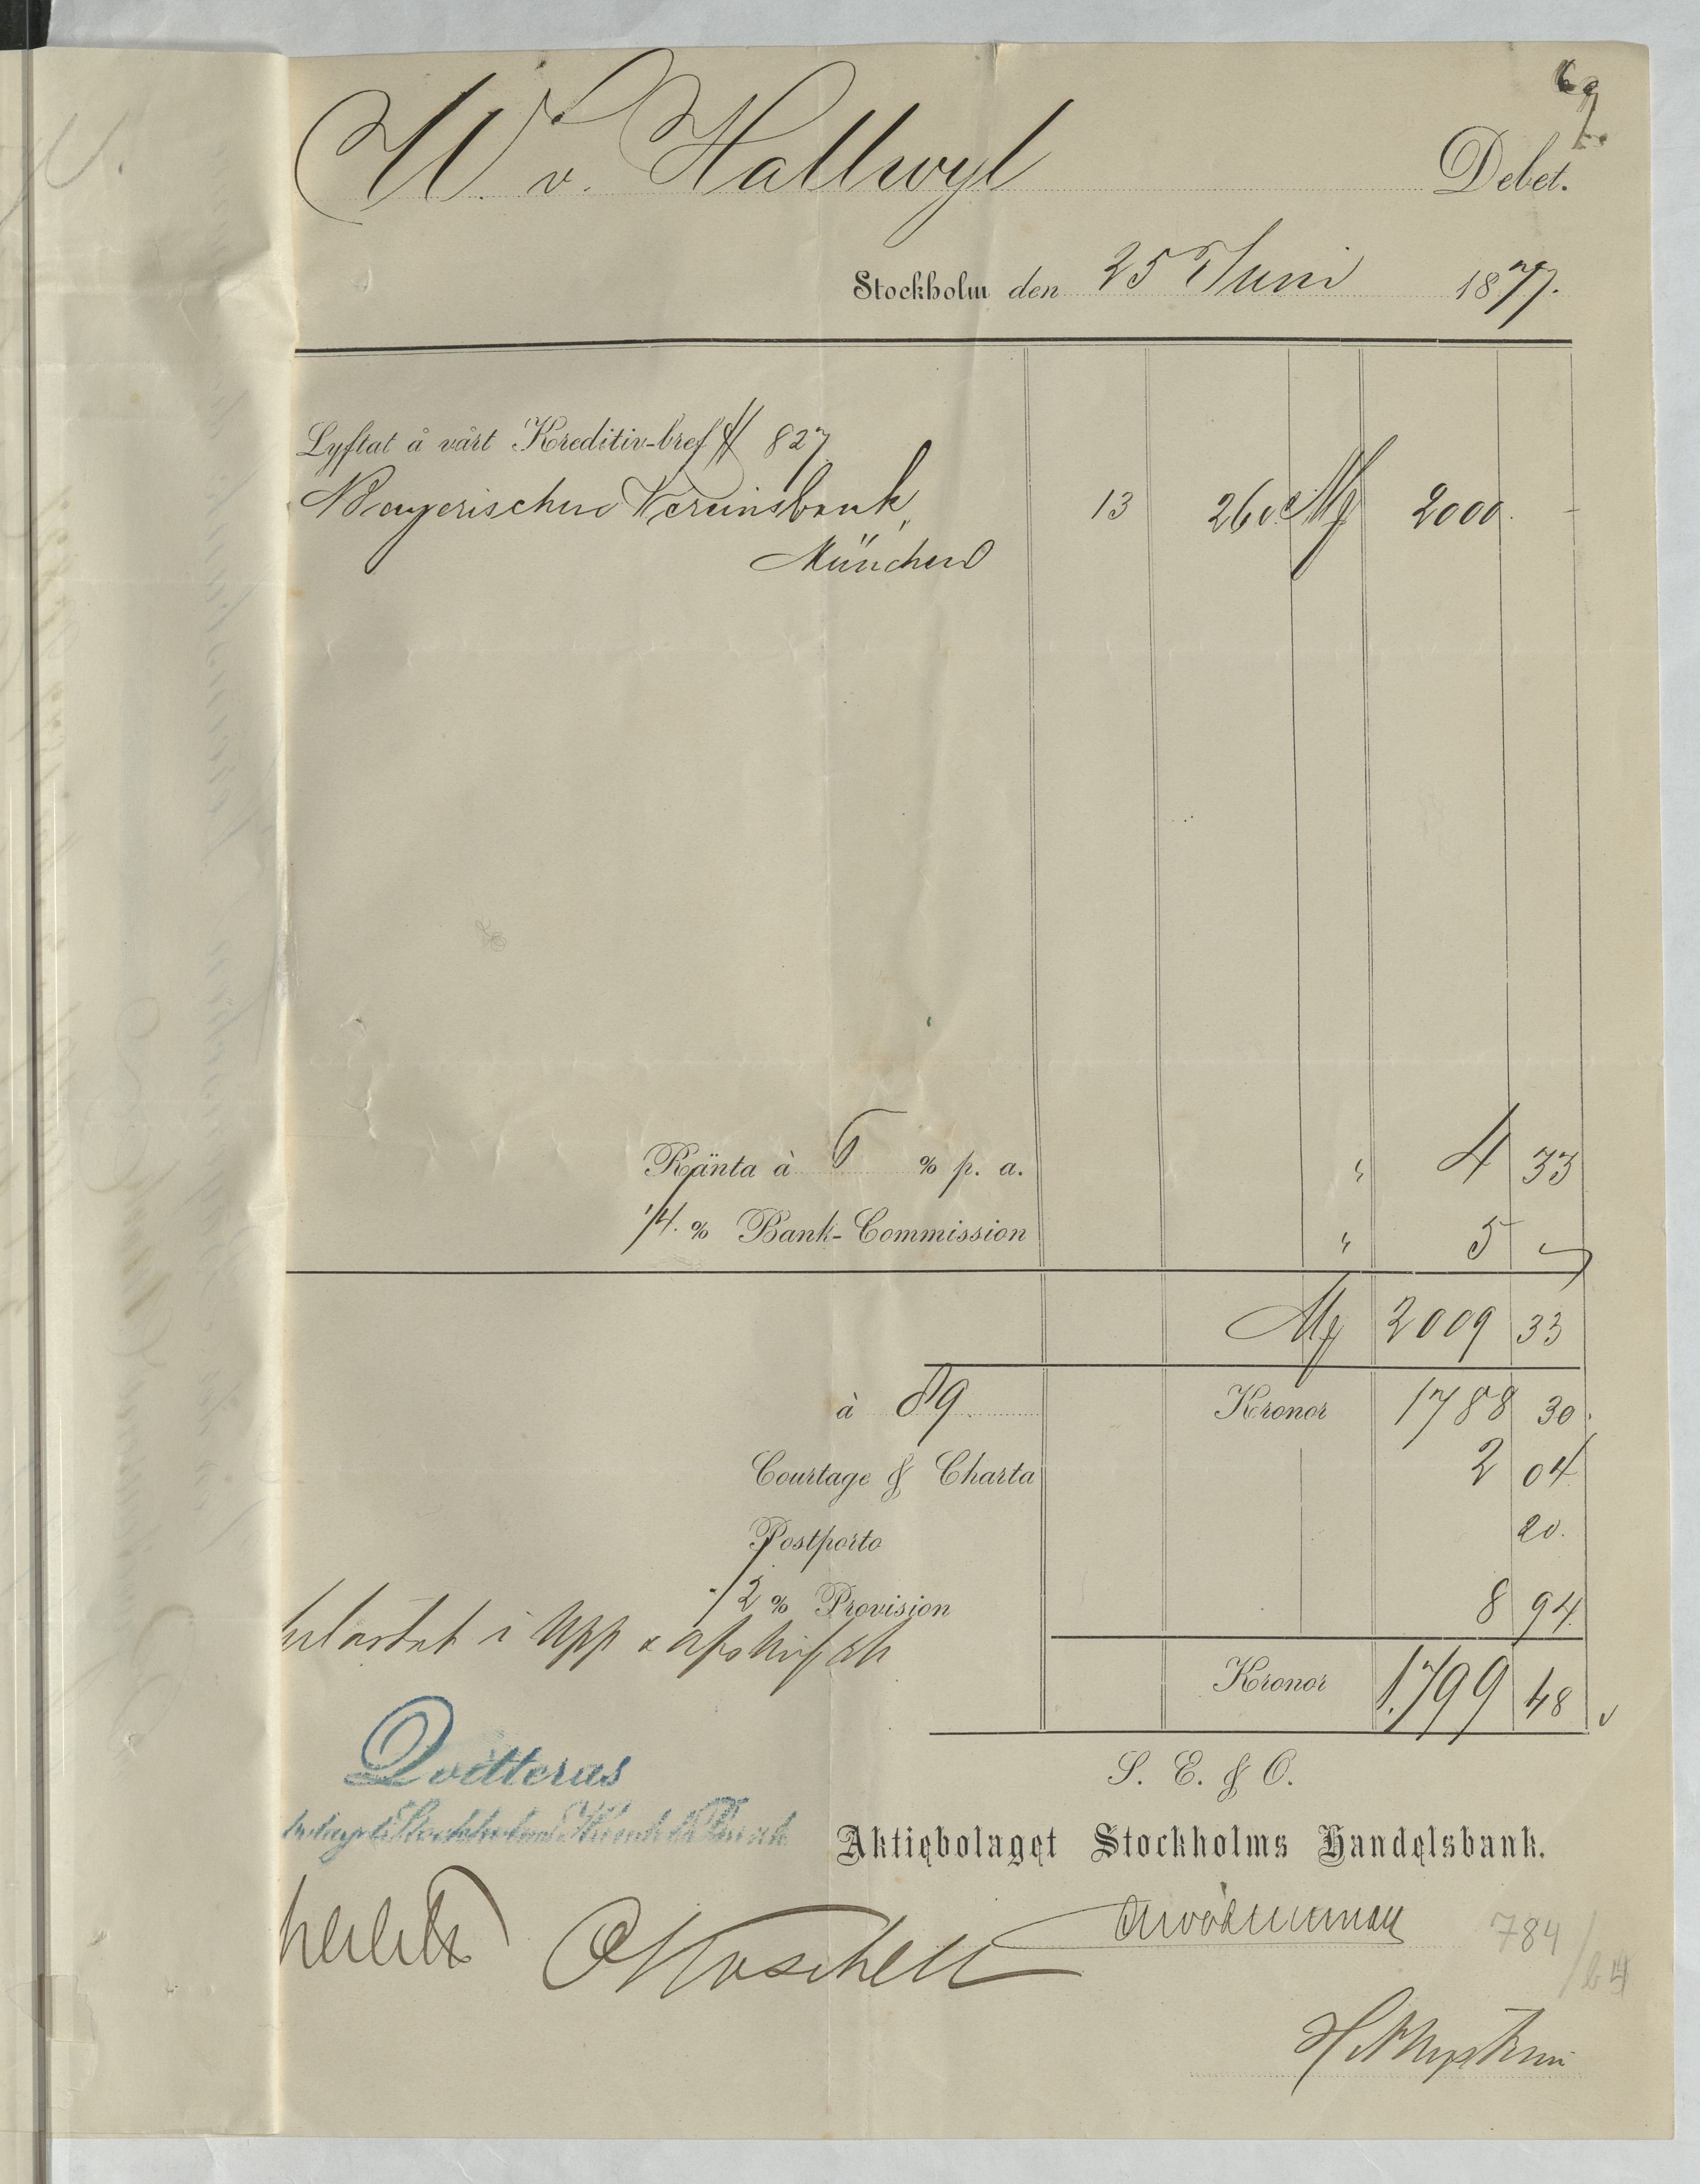 67.
W. v. Hallwyl Debet.
Stockholm den 25 Juni 1877.
Lyftat å vårt Kreditiv-bref # 827
Bayerischen Vereinsbank, 13 260 M 2000. -
München
Ränta à 6 % p. a. " 4 33
1/4. % Bank-Commission " 5 -
M 2009 33
à 89. Kronor 1788 30.
Courtage & Charta 2 04
Postporto 20.
1/2 % Provision 8 94.
belastat i Upp &
Kronor 1.799 48
Qvitteras
S. E. & O.
Aktiebolaget Stockholms Handelsbank.
784/64